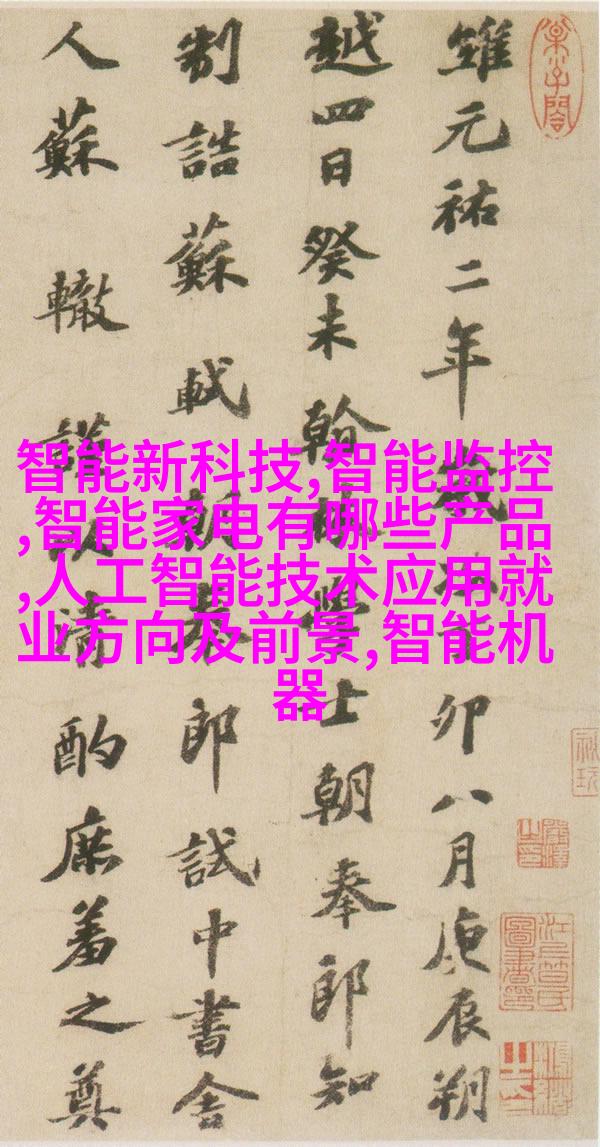 維元祐二年歲次丁卯八月庚辰朔
越四日癸未翰林學士朝奉郎知
制誥蘇軾朝奉郎試中書舍
人蘇轍謹以清酌庶羞之奠
智能新科技,智能监控
,智能家电有哪些产品
,人工智能技术应用就
业方向及前景,智能机
器